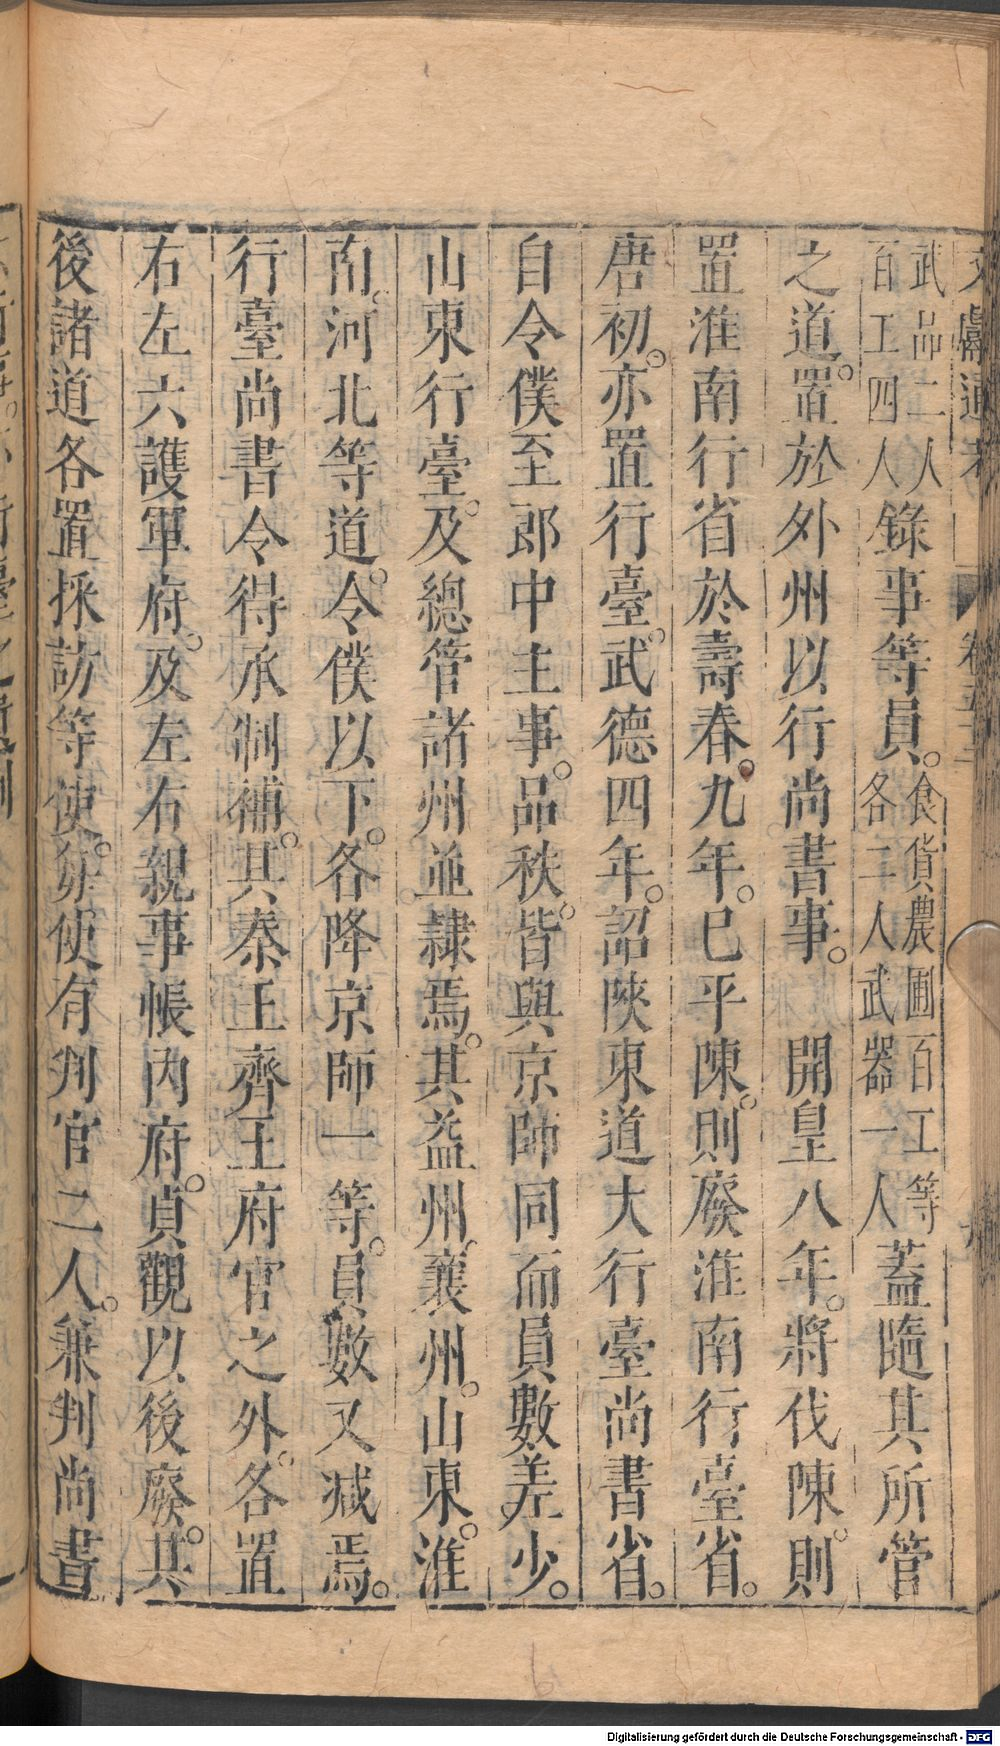 武品二人
百工四人
錄事等員。
食貨農圃百工等
各二人武器一人
蓋隨其所管
之道。置於外州以行尚書事。　開皇八年。將伐陳。則
置淮南行省於壽春。九年。已平陳。則廢淮南行臺省。
唐初。亦置行臺。武德四年。詔陝東道大行臺尚書省。
自令僕至郎中主事。品秩。皆與京師同而員數差少。
山東行臺。及總管諸州並隷焉。其益州。襄州。山東。淮
南。河北等道。令僕以下。各降京師一等。員數又減焉。
行臺尚書令得承制補。其秦王齊王府官之外。各置
右左六護軍府。及左右親事帳內府。貞觀以後廢。其
後諸道各置採訪等使。每使有判官二人。兼判尚書
文獻通考
Digitalisierung gefördert durch die Deutsche Forschungsgemeinschaft - DFG